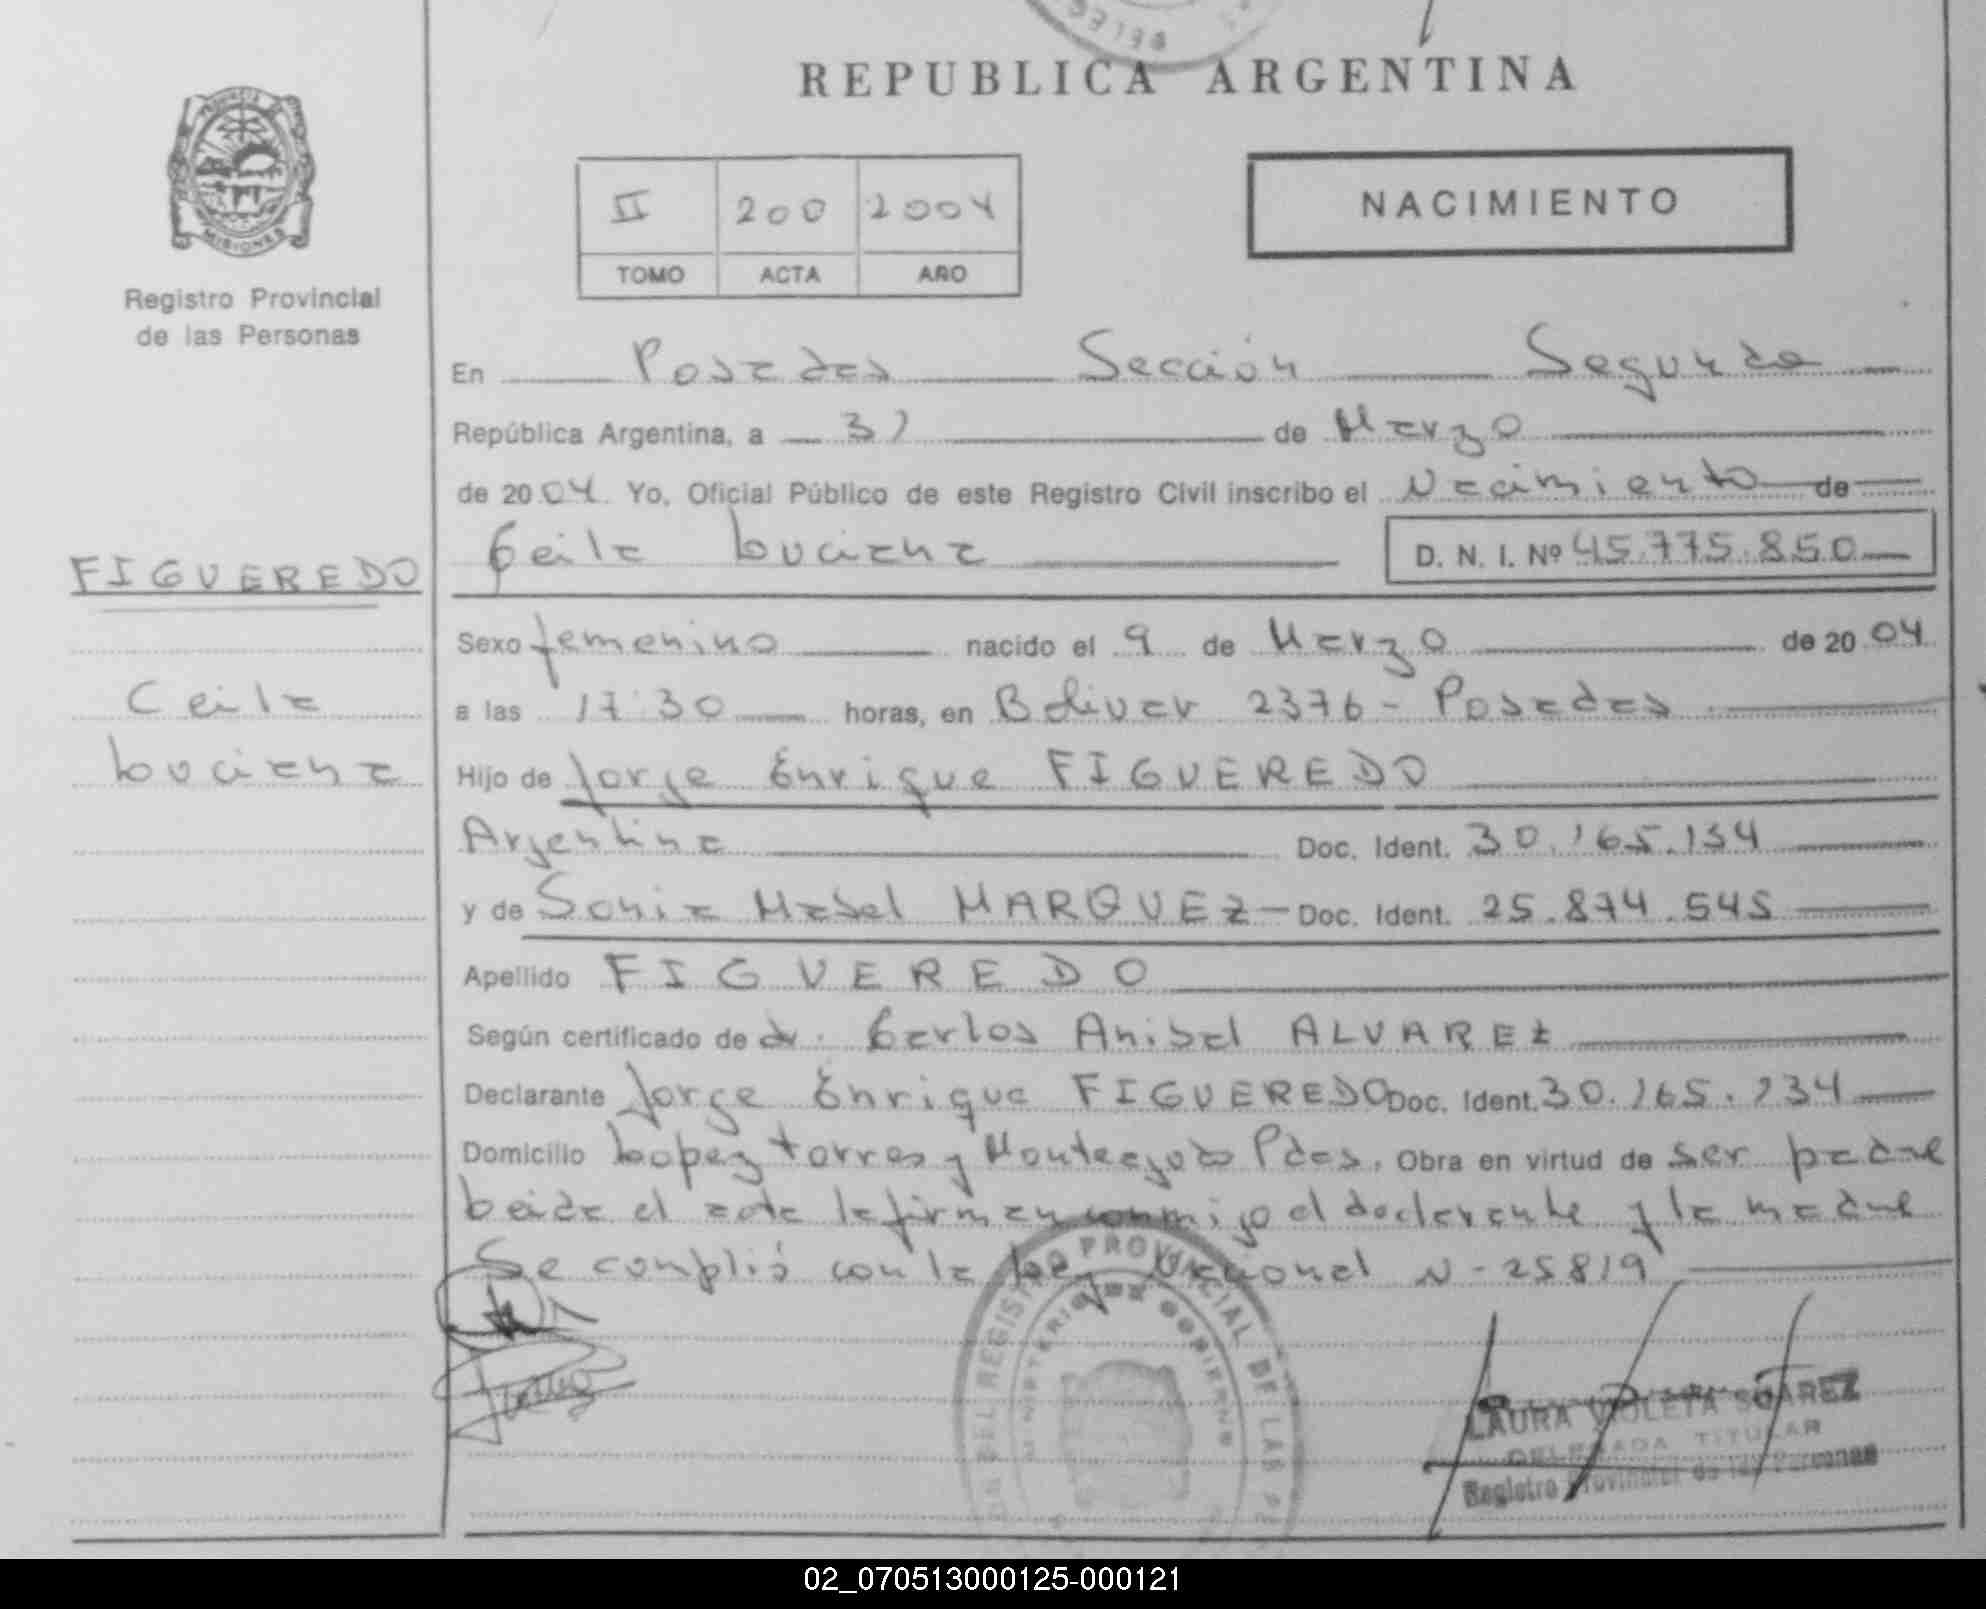 REPUBLICA ARGENTINA
MISIONES
Registro Provincial
de las Personas
II 200 2004
TOMO ACTA AÑO
NACIMIENTO
En Posadas Sección Segunda
República Argentina, a 31 de Marzo
de 2004. Yo, Oficial Público de este Registro Civil inscribo el Nacimiento de
Ceila Luciana D. N. I. Nº 45.775.850
FIGUEREDO
Ceila
Luciana
Sexo femenino nacido el 9 de Marzo de 2004
a las 17:30 horas, en Bolivar 2376 - Posadas
Hijo de Jorge Enrique FIGUEREDO
Argentina Doc. Ident. 30.165.134
y de Sonia Mabel MARQUEZ - Doc. Ident. 25.874.545
Apellido FIGUEREDO
Según certificado de dr. Carlos Anibal ALVAREZ
Declarante Jorge Enrique FIGUEREDO Doc. Ident. 30.165.134
Domicilio Lopez torres y Monteagudo Pdas. Obra en virtud de ser padre
Leida el acta la firman conmigo el declarante y la madre
Se complió con la Ley Nacional N - 25819
REGISTRO PROVINCIAL DE LAS
MINISTERIO DE GOBIERNO
LAURA VIOLETA SUAREZ
DELEGADA TITULAR
Registro Provincial de las Personas
02_070513000125-000121